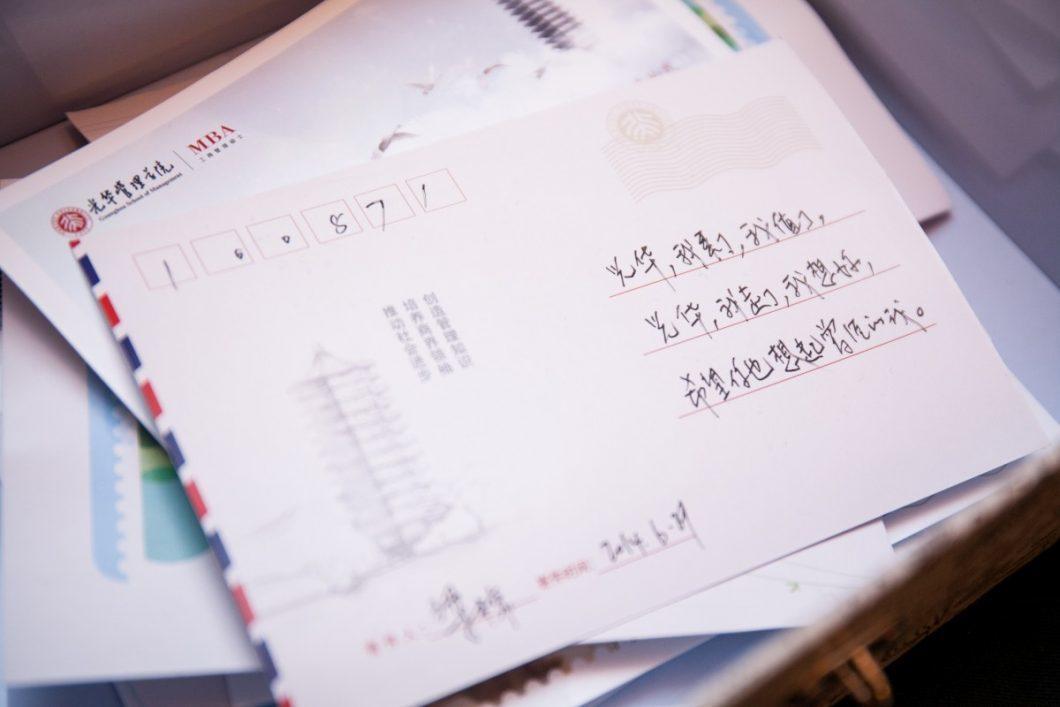 光华管理学院
Guanghua School of Management
MBA
工商管理硕士
1 0 0 8 7 1
光华，我来了，我值了，
光华，我走了，我想好，
希望你也想起曾经的我。
创造管理知识
培养商界领袖
推动社会进步
寄件人：
寄件时间：2014.6.21